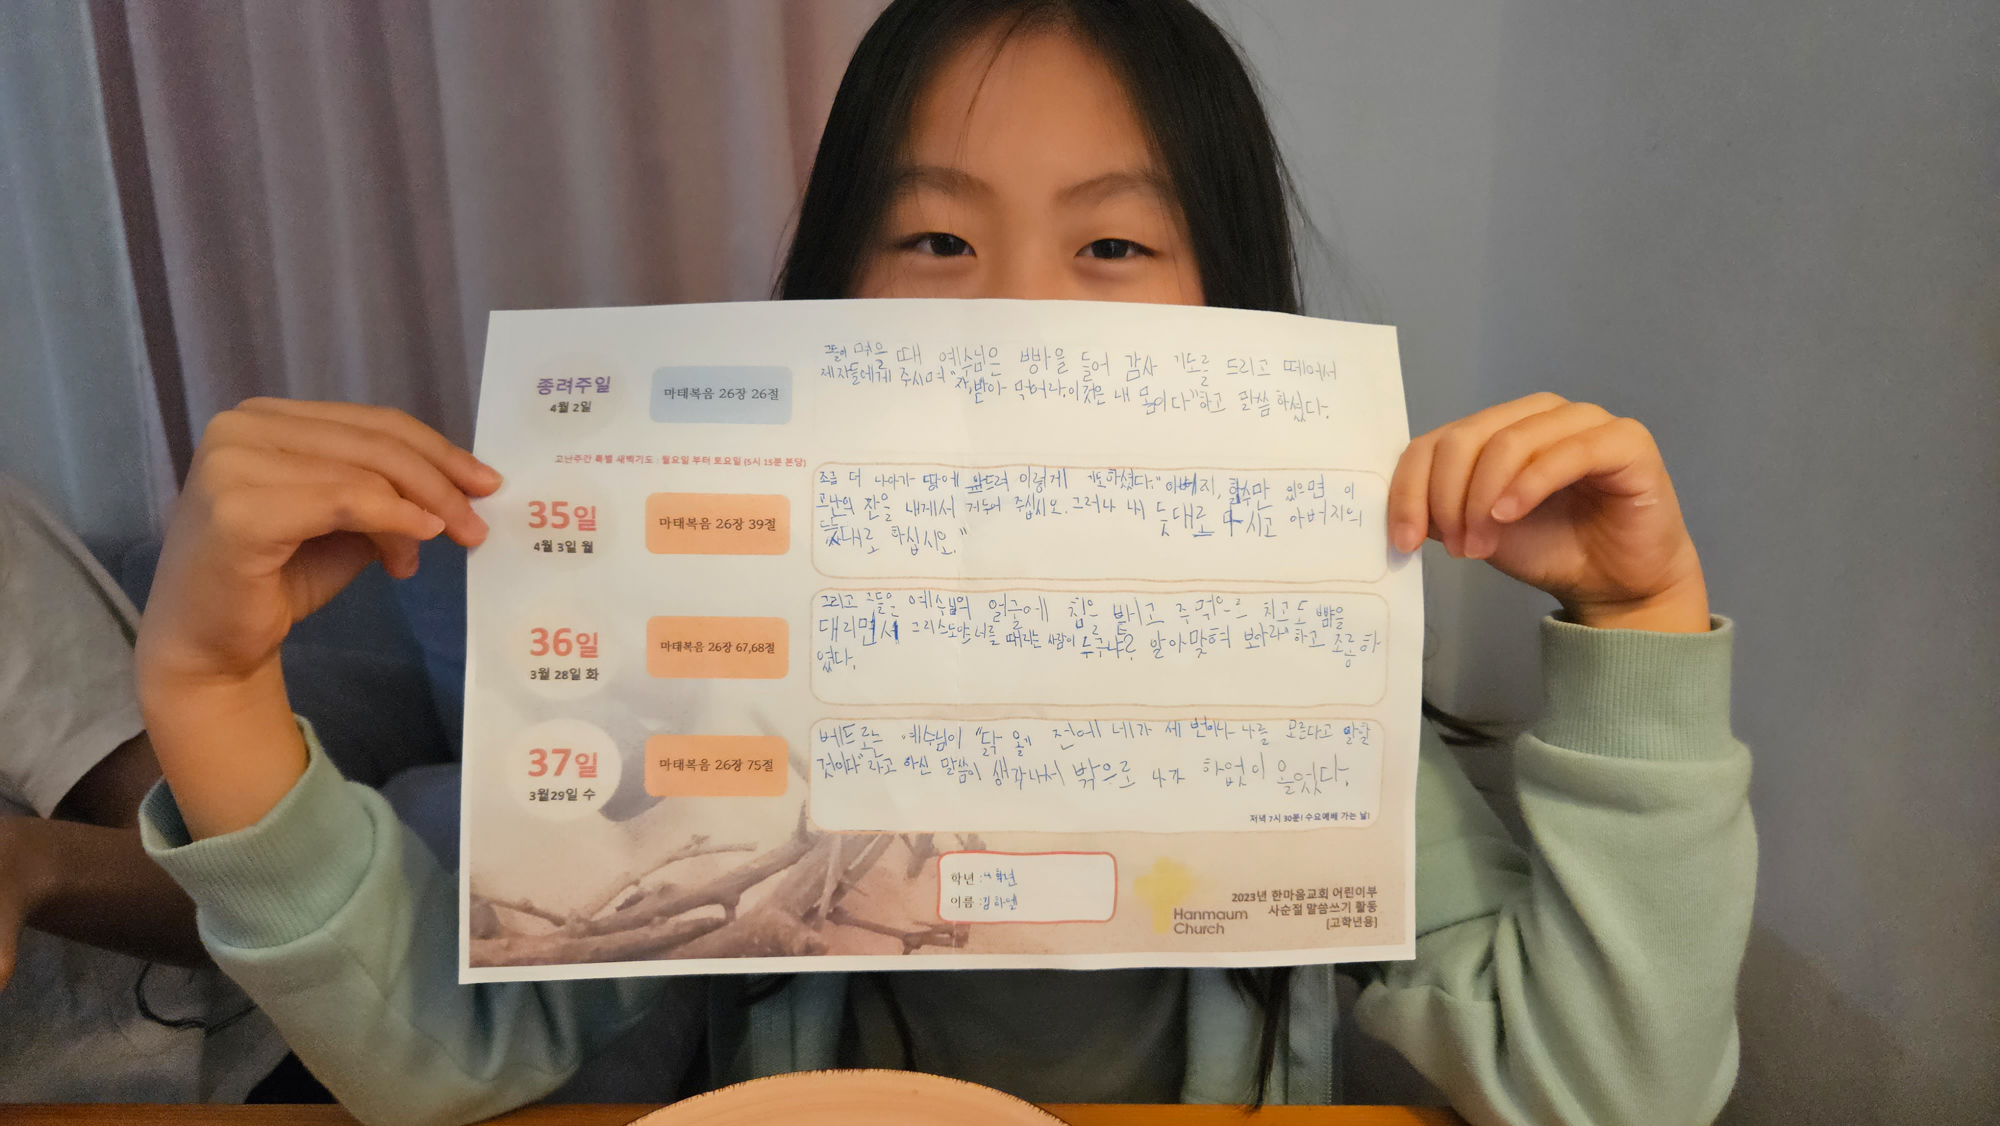 종려주일
4월 2일
마태복음 26장 26절
그들이 먹을 때 예수님은 빵을 들어 감사 기도를 드리고 떼어서
제자들에게 주시며 "자, 받아 먹어라. 이것은 내 몸이다"하고 말씀하셨다.
고난주간 특별 새벽기도 : 월요일 부터 토요일 (5시 15분 본당)
35일
4월 3일 월
마태복음 26장 39절
조금 더 나아가 땅에 엎드려 이렇게 기도하셨다. "아버지, 할 수만 있으면 이
고난의 잔을 내게서 거두어 주십시오. 그러나 내 뜻대로 마시고 아버지의
뜻대로 하십시오."
36일
3월 28일 화
마태복음 26장 67,68절
그리고 그들은 예수님의 얼굴에 침을 뱉고 주먹으로 치고 또 뺨을
때리면서 그리스도야, 너를 때리는 사람이 누구냐? 알아맞혀 보아라" 하고 조롱하
였다.
37일
3월29일 수
마태복음 26장 75절
베드로는 예수님이 "닭 울기 전에 네가 세 번이나 나를 모른다고 말할
것이다" 라고 하신 말씀이 생각나서 밖으로 나가 하없이 울었다.
저녁 7시 30분! 수요예배 가는 날!
학년 : 학년
이름 : 김하엘
Hanmaum
Church
2023년 한마음교회 어린이부
사순절 말씀쓰기 활동
[고학년용]